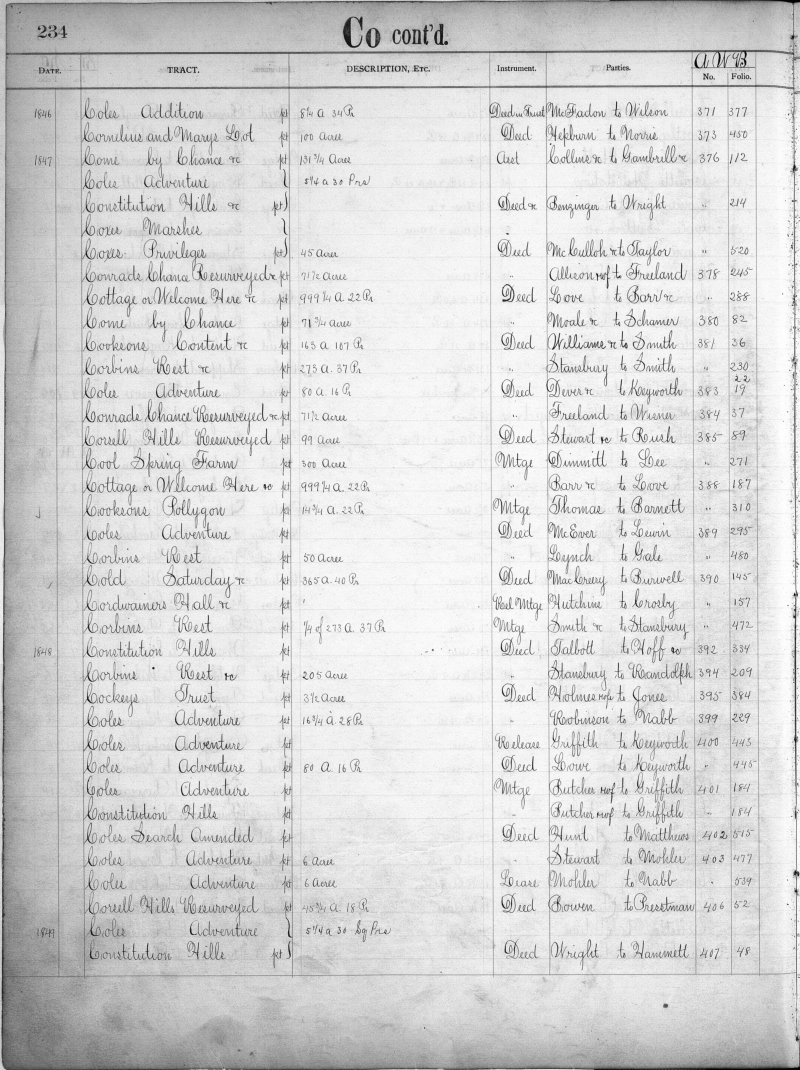 234 Co cont'd.
A W B
DATE. TRACT. DESCRIPTION, ETC. Instrument. Parties. No. Folio.
1846 Coles Addition pt 8¼ a 34 Ps Deed in Trust McFadon to Wilson 371 377
Cornelius and Marys Lot pt 100 Acres Deed Hepburn to Norris 373 450
1847 Come by Chance &c pt 131 ¾ Acres Asst Collins &c to Gambrill &c 376 112
Coles Adventure 5¼ a 30 Prs
Constitution Hills &c pt Deed &c Benzinger to Wright " 214
Coxes Marshes "
Coxes Privileges pt 45 acres Deed McCulloh &c to Taylor " 520
Conrads Chance Resurveyed &c pt 71½ Acres " Allison to Freeland 378 245
Cottage or Welcome Here &c pt 999 ¼ A. 22 Ps Deed Love to Barr &c " 288
Come by Chance pt 71 ¾ Acres " Moale &c to Schamer 380 82
Cooksons Content &c pt 163 A 107 Ps Deed Williams &c to Smith 381 36
Corbins Rest &c pt 273 A. 37 Ps " Stansbury to Smith " 230
22
Coles Adventure pt 80 A. 16 Ps Deed Dever &c to Keyworth 383 19
Conrads Chance Resurveyed &c pt 71½ Acres " Freeland to Wisner 384 37
Corsell Hills Resurveyed pt 99 Acres Deed Stewart &c to Rush 385 89
Cool Spring Farm pt 300 Acres Mtge Dimmitt to Lee " 271
Cottage or Welcome Here &c pt 999 ¼ A. 22 Ps " Barr &c to Love 388 187
Cooksons Pollygon pt 14 ¾ A. 22 Ps Mtge Thomas to Barnett " 310
Coles Adventure pt Deed McEver to Lewin 389 295
Corbins Rest pt 50 Acres " Lynch to Gale " 480
Cold Saturday &c pt 365 A. 40 Ps Deed MacCreery to Burwell 390 145
Cordwainers Hall &c pt " Rel Mtge Hutchins to Crosby " 157
Corbins Rest pt ¼ of 273 A. 37 Ps Mtge Smith &c to Stansbury " 472
1848 Constitution Hills pt Deed Talbott to Hoff &c 392 334
Corbins Rest &c pt 205 Acres " Stansbury to Randolph 394 209
Cockeys Trust pt 3½ Acres Deed Holmes to Jones 395 384
Coles Adventure pt 16 ¾ A. 28 Ps " Robinson to Nabb 399 229
Coles Adventure pt Release Griffith to Keyworth 400 443
Coles Adventure pt 80 A. 16 Ps Deed Lowe to Keyworth " 445
Coles Adventure pt Mtge Butcher to Griffith 401 184
Constitution Hills pt " Butcher to Griffith " 184
Coles Search Amended pt Deed Hunt to Matthews 402 515
Coles Adventure pt 6 Acres " Stewart to Mohler 403 477
Coles Adventure pt 6 Acres Lease Mohler to Nabb " 539
Corsell Hills Resurveyed pt 45 ¾ A. 18 Ps Deed Bowen to Presstman 406 52
1849 Coles Adventure 5¼ a 30 Sq Prs
Constitution Hills pt Deed Wright to Hammett 407 48